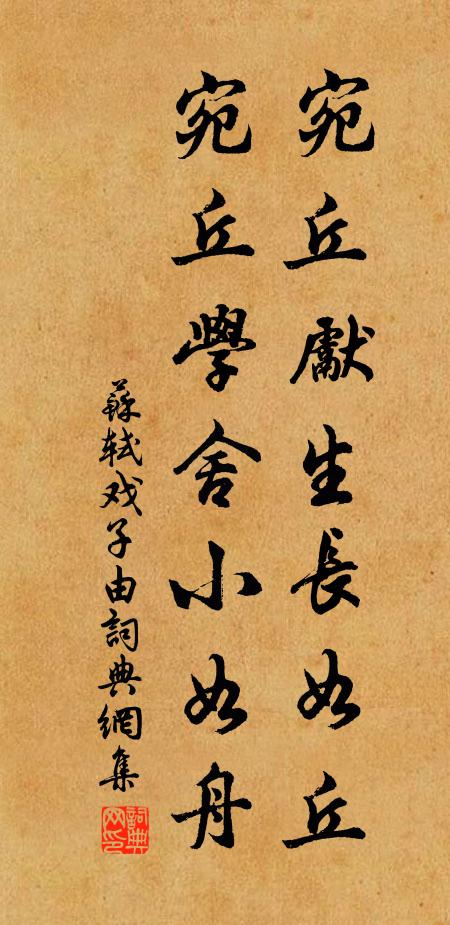 宛丘獻生長如丘
宛丘學舍小如舟
蘇軾戏子由詞典網集
詞典
网印